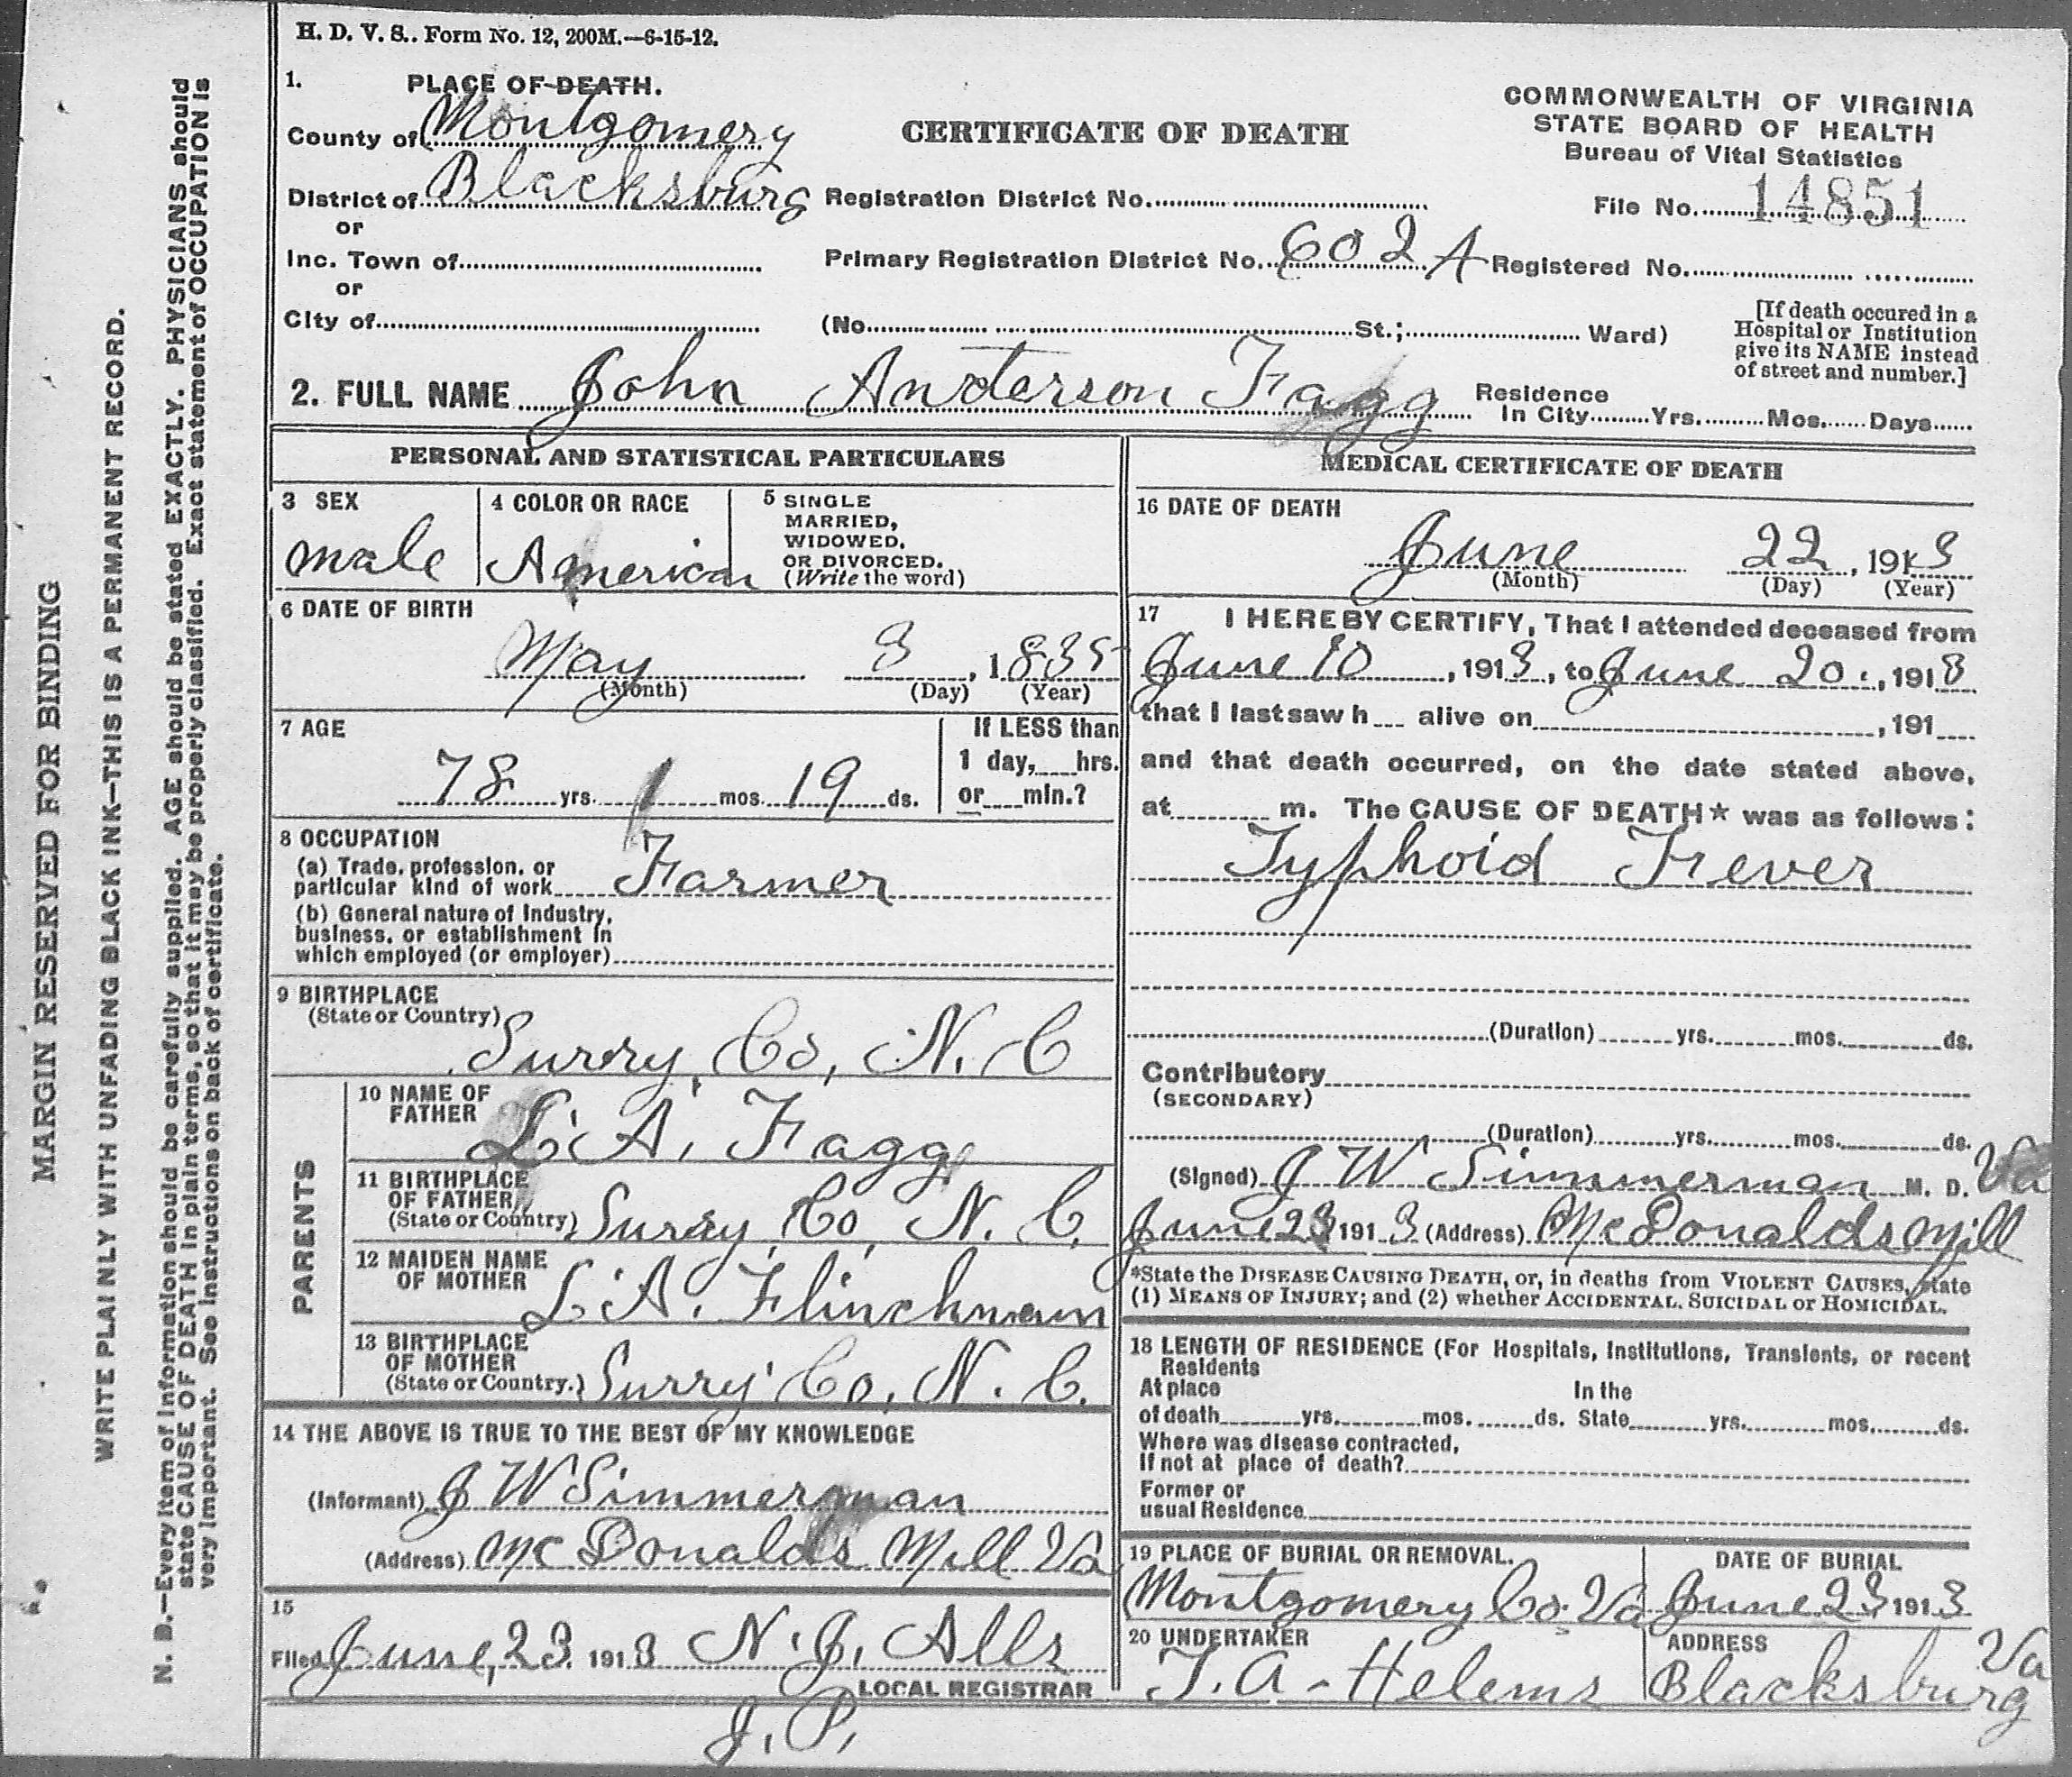 H. D. V. S.. Form No. 12, 200M.—6-15-12.
1. PLACE OF DEATH.
County of Montgomery
District of Blacksburg
or
Inc. Town of
or
City of
CERTIFICATE OF DEATH
COMMONWEALTH OF VIRGINIA
STATE BOARD OF HEALTH
Bureau of Vital Statistics
Registration District No.
File No. 14851
Primary Registration District No. 602 A Registered No.
(No. St.; Ward)
[If death occured in a
Hospital or Institution
give its NAME instead
of street and number.]
2. FULL NAME John Anderson Fagg
Residence
In City Yrs. Mos. Days
PERSONAL AND STATISTICAL PARTICULARS
3 SEX
male
4 COLOR OR RACE
American
5 SINGLE
MARRIED,
WIDOWED,
OR DIVORCED.
(Write the word)
6 DATE OF BIRTH
May 3, 1835
(Month) (Day) (Year)
7 AGE
78 yrs. 1 mos. 19 ds.
If LESS than
1 day, hrs.
or min.?
8 OCCUPATION
(a) Trade, profession, or
particular kind of work Farmer
(b) General nature of Industry,
business, or establishment in
which employed (or employer)
9 BIRTHPLACE
(State or Country)
Surry, Co, N. C
PARENTS
10 NAME OF
FATHER
L. A. Fagg
11 BIRTHPLACE
OF FATHER
(State or Country) Surry, Co, N. C.
12 MAIDEN NAME
OF MOTHER
L. A. Flinchmaum
13 BIRTHPLACE
OF MOTHER
(State or Country.) Surry Co, N. C.
14 THE ABOVE IS TRUE TO THE BEST OF MY KNOWLEDGE
(Informant) J W Simmerman
(Address) McDonalds Mill Va
15
Filed June, 23. 1913 N. J. Alls
LOCAL REGISTRAR
J. P.
MEDICAL CERTIFICATE OF DEATH
16 DATE OF DEATH
June 22, 1913
(Month) (Day) (Year)
17 I HEREBY CERTIFY, That I attended deceased from
June 10, 1913, to June 20., 1913
that I last saw h alive on , 191
and that death occurred, on the date stated above,
at m. The CAUSE OF DEATH★ was as follows:
Typhoid Fever
(Duration) yrs. mos. ds.
Contributory
(SECONDARY)
(Duration) yrs. mos. ds.
(Signed) J W Simmerman M. D. Va
June 23 1913 (Address) McDonalds Mill
*State the DISEASE CAUSING DEATH, or, in deaths from VIOLENT CAUSES, state
(1) MEANS OF INJURY; and (2) whether ACCIDENTAL, SUICIDAL or HOMICIDAL.
18 LENGTH OF RESIDENCE (For Hospitals, Institutions, Transients, or recent
Residents
At place In the
of death yrs. mos. ds. State yrs. mos. ds.
Where was disease contracted,
If not at place of death?
Former or
usual Residence
19 PLACE OF BURIAL OR REMOVAL.
Montgomery Co. Va
DATE OF BURIAL
June 23 1913
20 UNDERTAKER
T. A - Helems
ADDRESS
Blacksburg Va
MARGIN RESERVED FOR BINDING
WRITE PLAINLY WITH UNFADING BLACK INK—THIS IS A PERMANENT RECORD.
N. B.—Every item of information should be carefully supplied. AGE should be stated EXACTLY. PHYSICIANS should
state CAUSE OF DEATH in plain terms, so that it may be properly classified. Exact statement of OCCUPATION is
very important. See instructions on back of certificate.